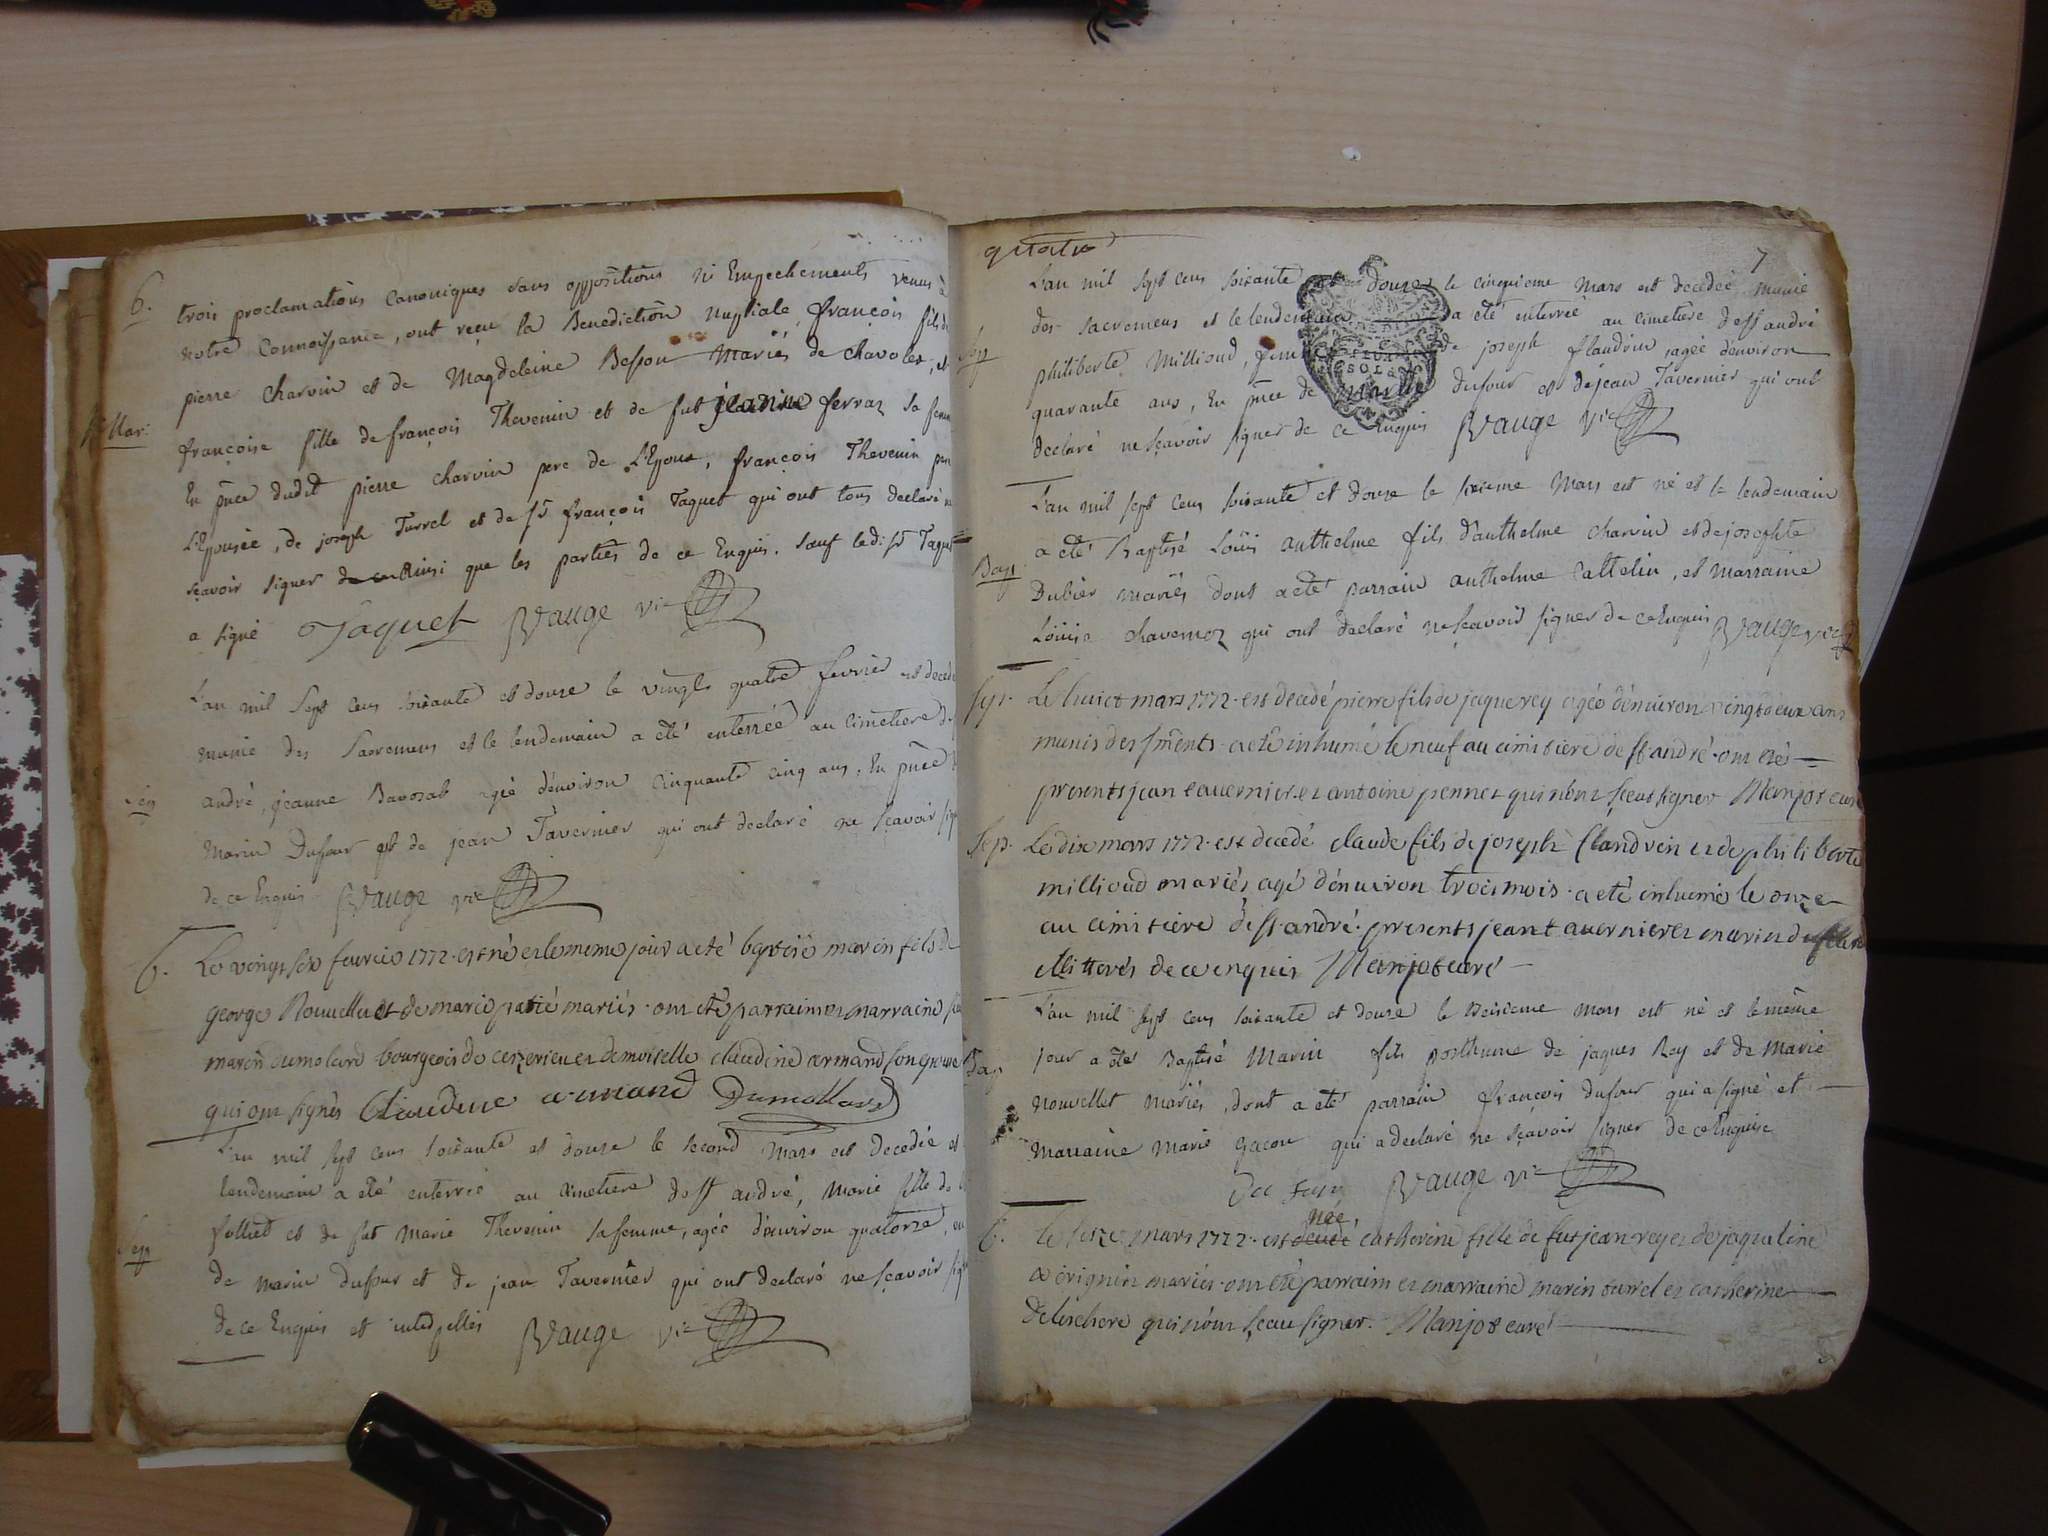 6.
trois proclamations canoniques sans oppositions ni Empechements venus à
notre Connoissance, ont reçu la Benediction nuptiale, françois fils de
pierre charvin et de Magdeleine Besson Mariés de chavoley, et
Mar:
françoise fille de françois Thevenin et de fut jeanne ferraz sa fem
En pnce dudit pierre charvin pere de L'Epoux, françois Thevenin pere
L'Epousée, de joseph Turrel et de sr françois Taquet qui ont tous declaré ne
sçavoir signer Ainsi que les parties de ce Enquis. Sauf ledi. sr Taquet
a signé Jaquet Vauge vic
L'an mil Sept cens soixante et douze le vingt quatre fevrier est decedé
munie des Sacremens et le lendemain a été enterrée au cimetiere de
Sep
andré, jeanne Bavosat agée d'environ cinquante cinq ans, En pnce
Marin Dufour et de jean Tavernier qui ont declaré ne sçavoir sig
de ce Enquis Vauge vic
b. Le vingt six fevrier 1772. est né et le meme jour a eté baptisé marin fils de
george Nouvellet et de marie patié mariés. ont eté parrain et marraine
marin dumolard bourgeois de ceyzerieu et demoiselle claudine armand son epouse
qui ont signés Claudine armand Dumollard
L'an mil sept cens soixante et douze le second Mars est decedée et
lendemain a été enterrée au cimetiere de st andré, Marie fille de
folliet et de fut Marie Thevenin sa femme, agée d'environ quatorze
Sep
de Marin dufour et de jean Tavernier qui ont declaré ne sçavoir sig
de ce Enquis et interpellés Vauge vic
quatre
7
L'an mil sept cens soixante et douze le cinquieme Mars est decedée munie
des sacremens et le lendemain a été enterrée au cimetiere de st andré
Sep
philiberte Millioud, femme de joseph flandrin, agée d'environ
quarante ans, En pnce de Marin dufour et de jean Tavernier qui ont
declaré ne sçavoir signer de ce Enquis Vauge vic
L'an mil sept cens soixante et douze le sixieme Mars est né et le lendemain
a eté Baptisé Loüis anthelme fils d'anthelme charvin et de josephte
Bap
Dubier mariés dont a eté parrain anthelme Cattelin, et marraine
Loüise chavernoz qui ont declaré ne sçavoir signer de ce Enquis Vauge vic
Sep. Le huict mars 1772. est decedé pierre fils de jaque rey agée d'environ vingt deux ans
munis des sments. a eté inhumé le neuf au cimitiere de st andré. ont eté
presents jean tavernier et antoine pennet qui n'ont sceut signer Manjot curé
Sep. Le dix mars 1772. est decedé claude fils de joseph flandrin et de philiberte
millioud mariés, agé d'environ trois mois. a eté inhumé le onze
au cimitiere de st. andré. presents jean tavernier et marin dufour
illitterés de ce enquis Manjot curé
L'an mil sept cens soixante et douze le treisieme Mars est né et le même
jour a été Baptisé Marin fils posthume de jaques Rey et de Marie
Bap
nouvellet mariés, dont a eté parrain françois dufour qui a signé et
marraine Marie Gacon qui a declaré ne sçavoir signer de ce Enquise
Du four Vauge vic
née,
b. Le seize mars 1772. est decedé catherine fille de fut jean rey et de jaqueline
mariés. ont eté parrain et marraine marin turrel et catherine
qui n'ont sceau signer. Manjot curé